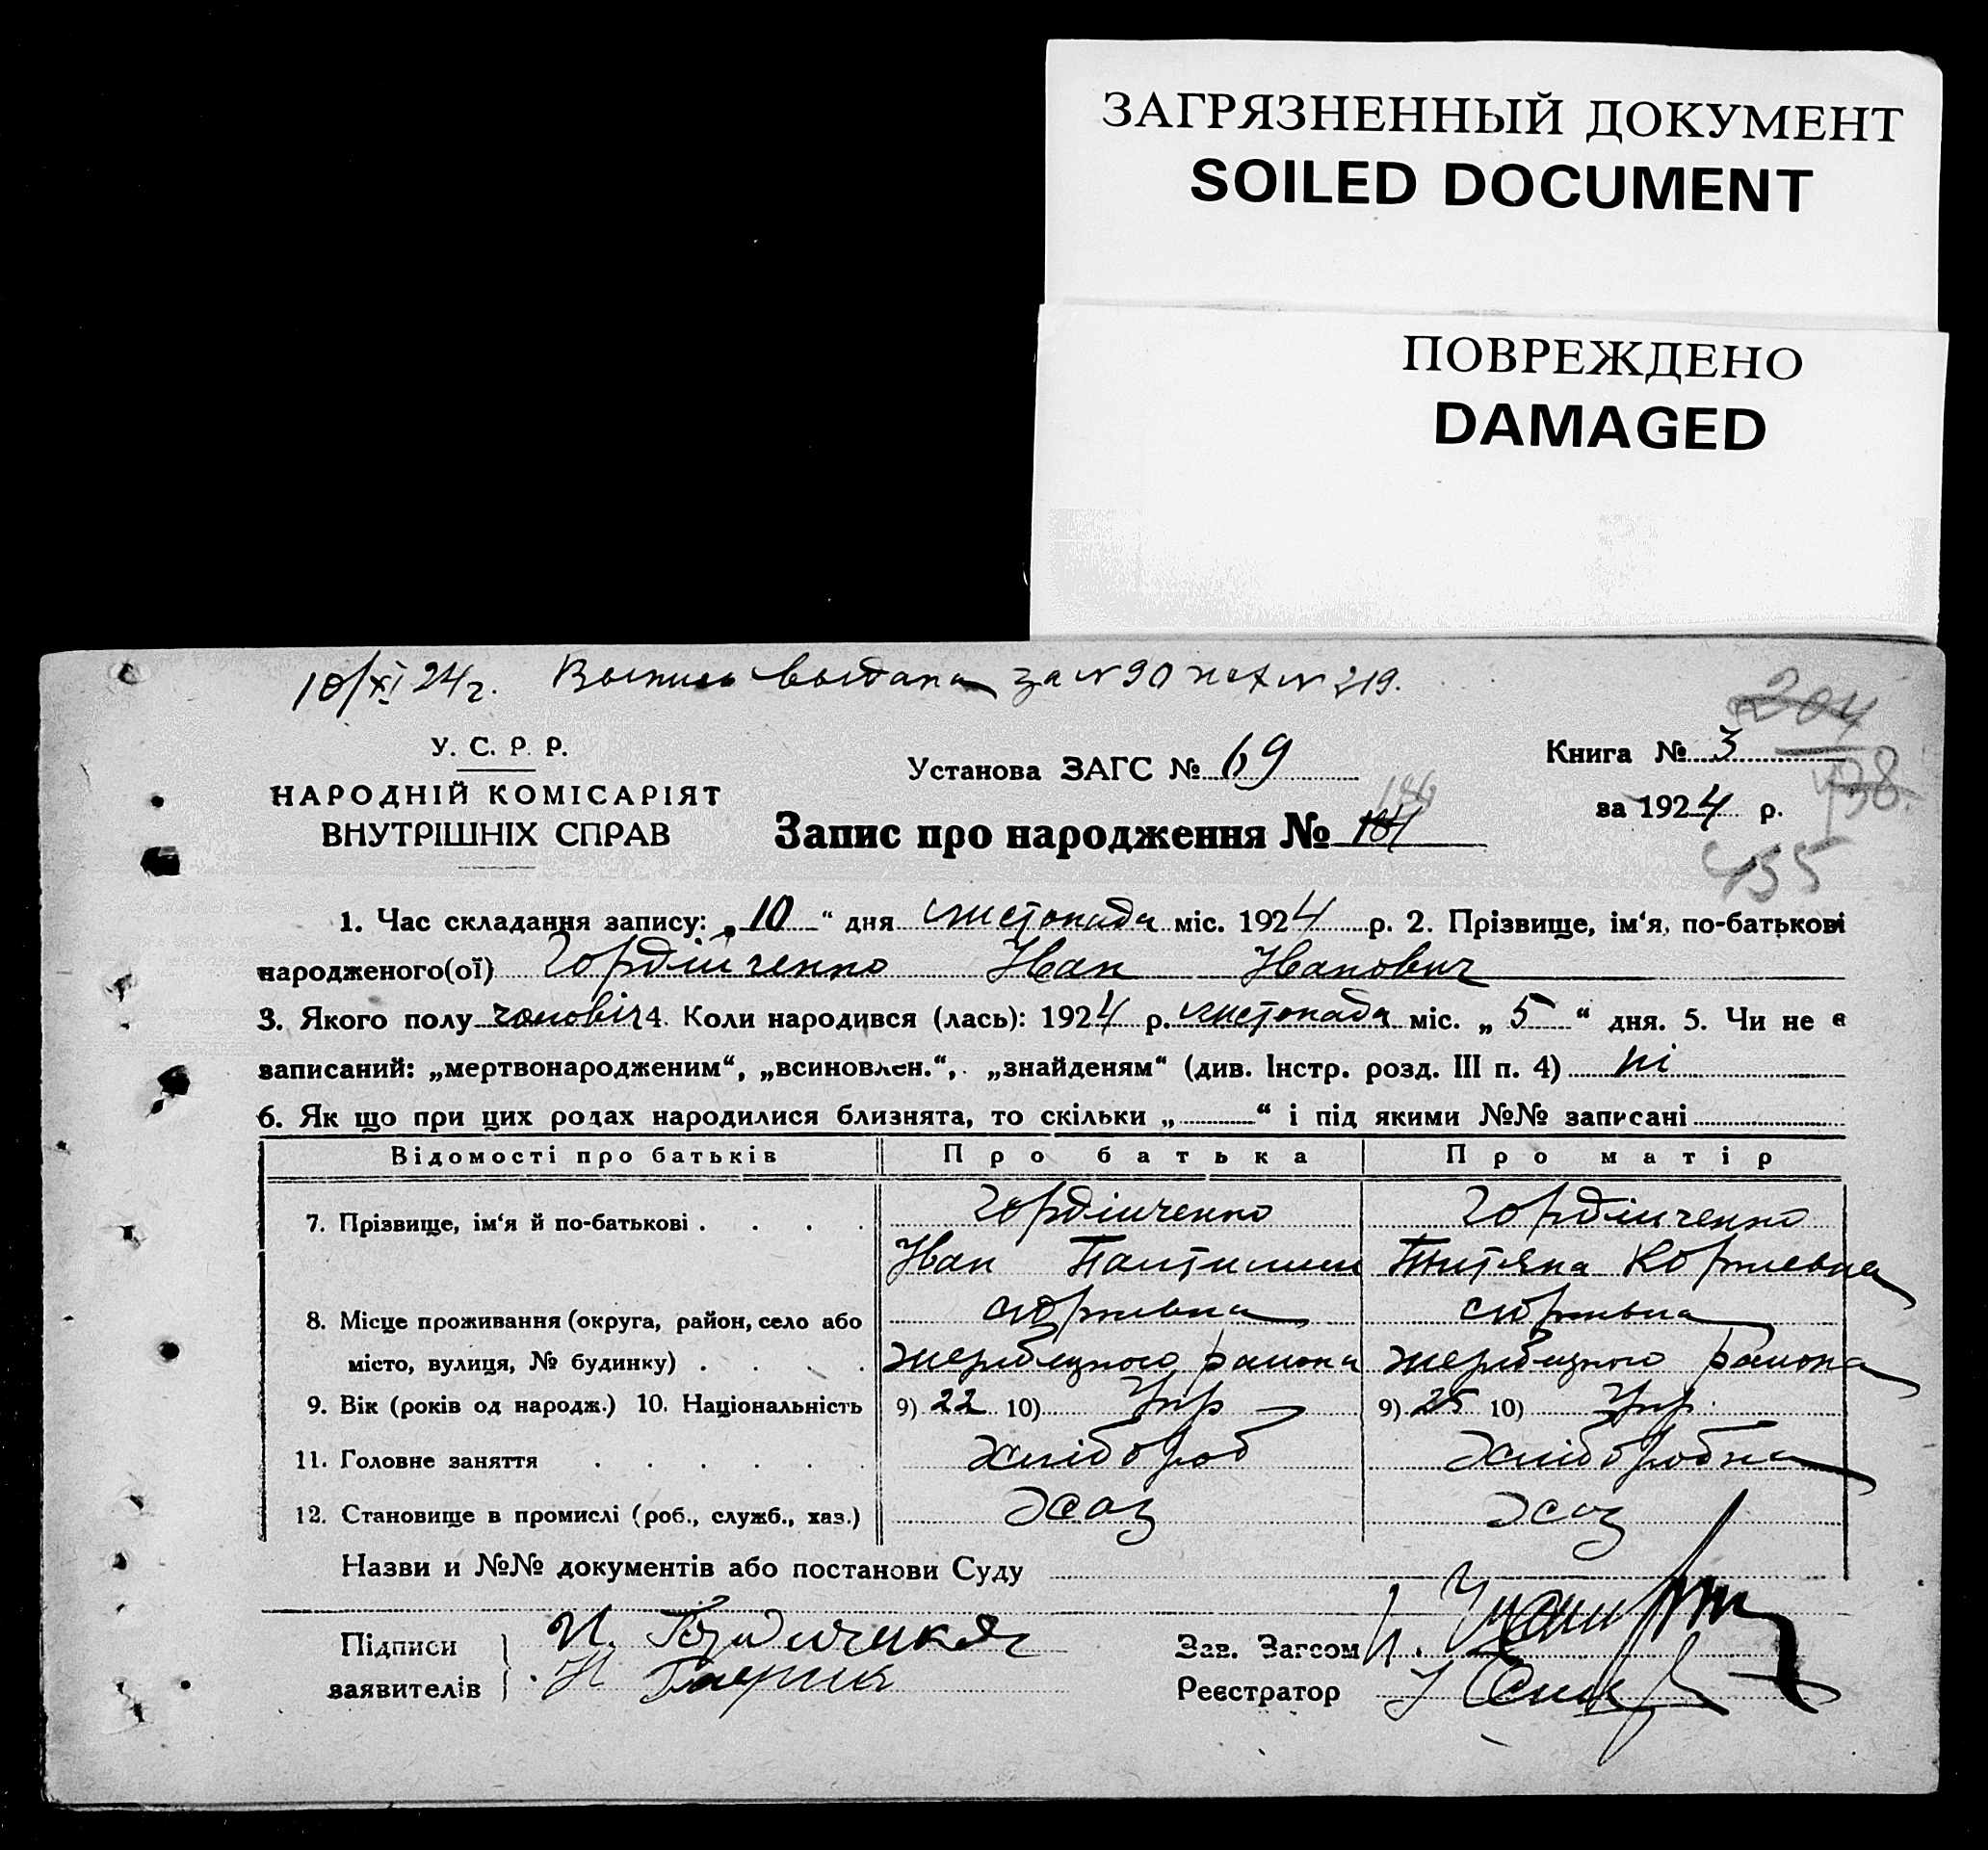 ЗАГРЯЗНЕННЫЙ ДОКУМЕНТ
SOILED DOCUMENT
ПОВРЕЖДЕНО
DAMAGED
10/XI 24 г. Выпись выдана за N 90 N 219.
204
У. С. Р. Р.
Установа ЗАГС № 69
Книга № 3
НАРОДНІЙ КОМІСАРІЯТ
ВНУТРІШНІХ СПРАВ
186
за 1924 р.
Запис про народження № 184
455
1. Час складання запису: „10“ дня листопада міс. 1924 р. 2. Прізвище, ім‘я, по-батькові
народженого(ої) Гордійченко Иван Иванович
3. Якого полу чоловіч 4. Коли народився (лась): 1924 р. листопада міс. „5“ дня. 5. Чи не є
записаний: „мертвонародженим“, „всиновлен.“, „знайденям“ (див. Інстр. розд. III п. 4) ні
6. Як що при цих родах народилися близнята, то скільки „ “ і під якими №№ записані
Відомості про батьків Про батька Про матір
7. Прізвище, ім‘я й по-батькові . . . . Гордійченко Гордійченко
Иван Татьяна
8. Місце проживання (округа, район, село або
місто, вулиця, № будинку) . . . . Жеребецкого району Жеребецкого району
9. Вік (років од народж.) 10. Національність 9) 22 10) Укр 9) 25 10) Укр.
11. Головне заняття . . . . . . хлібороб хліборобка
12. Становище в промислі (роб., служб., хаз.) хаз хаз
Назви и №№ документів або постанови Суду
Підписи И.
Зав. Загсом
заявителів
Реєстратор